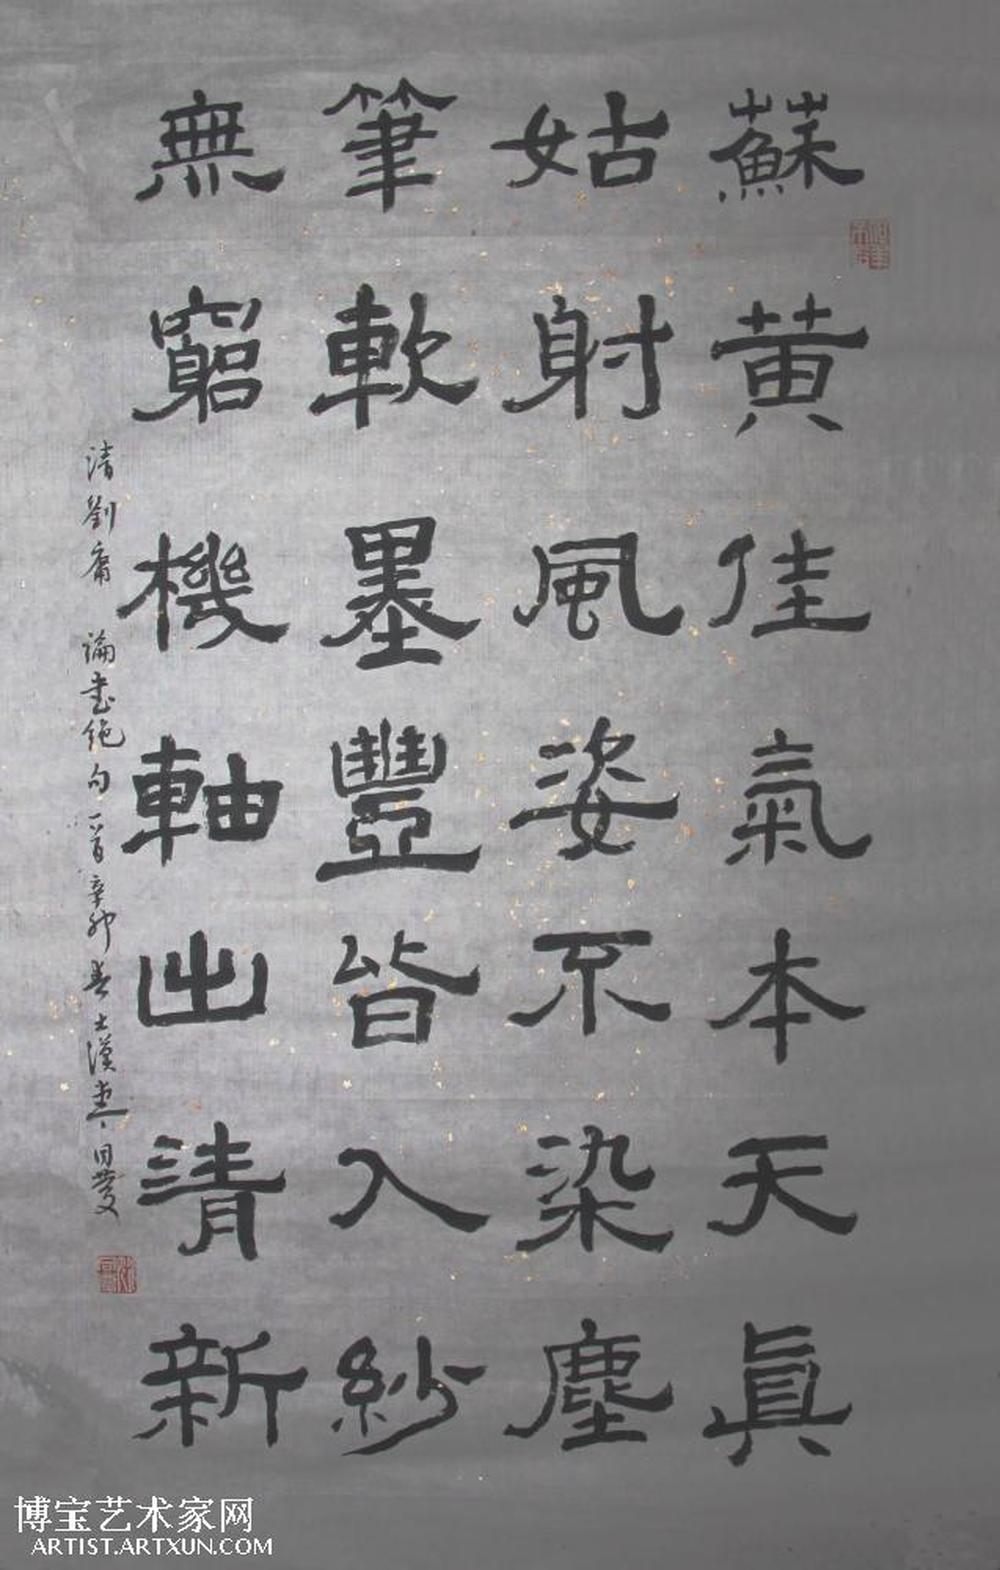 蘇黄佳氣本天真
姑射風姿不染塵
筆軟墨豐皆入紗
無窮機軸出清新
清劉庸 論書絶句一首辛卯春
博宝艺术家网
ARTIST.ARTXUN.COM